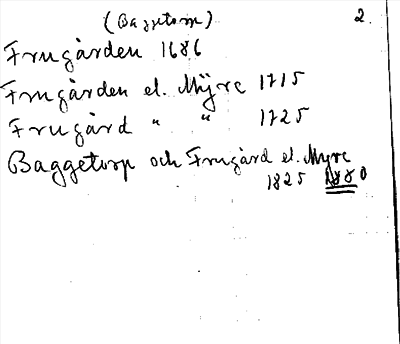 (Baggetorp) 2.
Frugården 1686
Frugården el. Myre 1715
Frugård " " 1725
Baggetorp och Frugård el. Myre
1825 1880